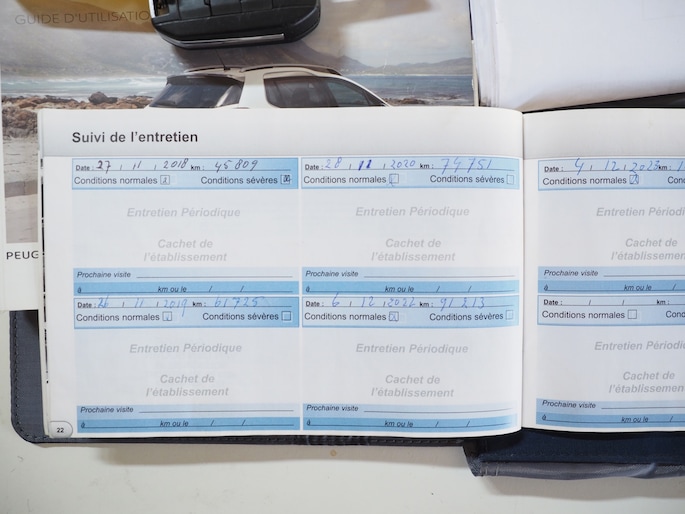 GUIDE D'UTILISATIO
PEUG
Suivi de l'entretien
Date : 27 / 11 / 2018 km : 45 809
Conditions normales Conditions sévères
Entretien Périodique
Cachet de
l'établissement
Prochaine visite
à km ou le / /
Date : 26 / 11 / 2019 km : 61725
Conditions normales Conditions sévères
Entretien Périodique
Cachet de
l'établissement
Prochaine visite
à km ou le / /
22
Date : 28 / 11 / 2020 km : 74751
Conditions normales Conditions sévères
Entretien Périodique
Cachet de
l'établissement
Prochaine visite
à km ou le / /
Date : 6 / 12 / km : 91 213
Conditions normales Conditions sévères
Entretien Périodique
Cachet de
l'établissement
Prochaine visite
à km ou le / /
Date : 4 / 12 / 2023 km : 1
Conditions normales
Entretien Pér
Cachet
l'établisse
Prochaine visite
à km ou le /
Date : / / km :
Conditions normales C
Entretien Péri
Cachet
l'établissem
Prochaine visite
à km ou le /